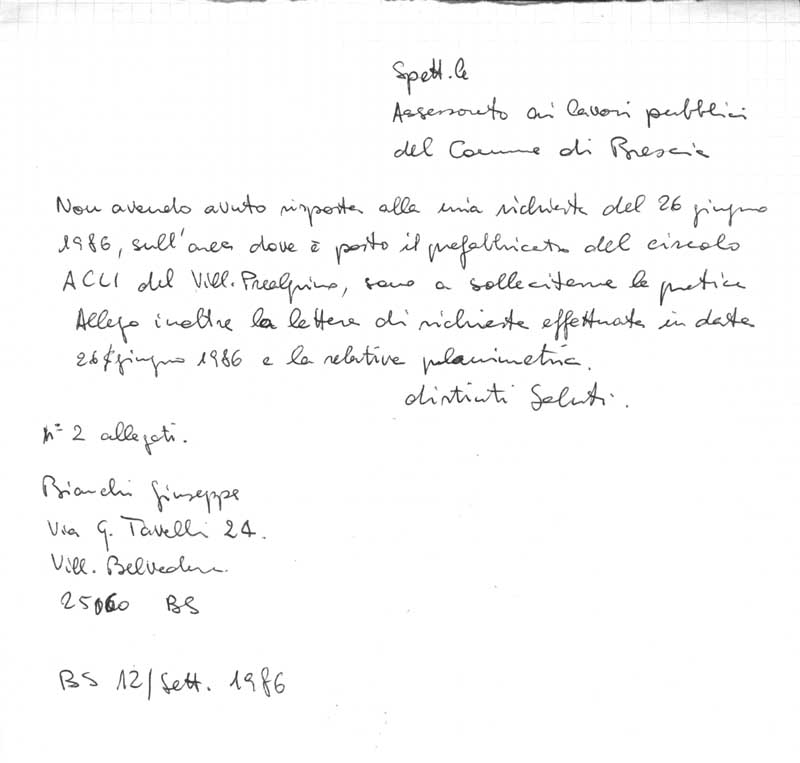 Spett.le
Assessorato ai lavori pubblici
del Comune di Brescia
Non avendo avuto risposta alla mia richiesta del 26 giugno
1986, sull'area dove è posto il prefabbricato del circolo
ACLI del Vill. Prealpino, sono a sollecitarne la pratica
Allego inoltre la lettera di richiesta effettuata in data
26 giugno 1986 e la relativa planimetria.
distinti Saluti.
n° 2 allegati.
Bianchi Giuseppe
Via G. Tavelli 24.
Vill. Belvedere.
25060 BS
BS 12/Sett. 1986